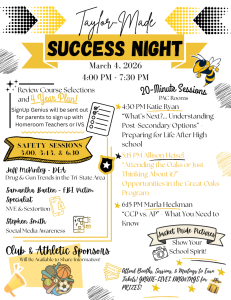 Taylor-Made
SUCCESS NIGHT
March 4, 2026
4:00 PM - 7:30 PM
Review Course Selections
and 4 Year Plan!
SignUp Genius will be sent out
for parents to sign up with
Homeroom Teachers or IVS
SAFETY SESSIONS
5:00, 5:45, & 6:30
Jeff McKinley - DEA
Drug & Gun Trends in the Tri State Area
Samantha Bacten - FBI Victim
Specialist
NVE & Sextortion
Stephen Smith
Social Media Awareness
Club & Athletic Sponsors
Will be Available to Share Information!
20-Minute Sessions
PAC Rooms
4:30 PM Katie Ryan
"What's Next?... Understanding
Post-Secondary Options"
Preparing for Life After High
school
5:15 PM Allison
"Attending the Oaks or Just
Thinking About it?"
Opportunities in the Great Oaks
Program
6:15 PM Maria Heckman
"CCP vs. AP" - What You Need to
Know
Jacket Pride Pictures
Show Your
School Spirit!
Attend Booths, Sessions, & Meetings to Earn
Tickets! for
PRIZES!